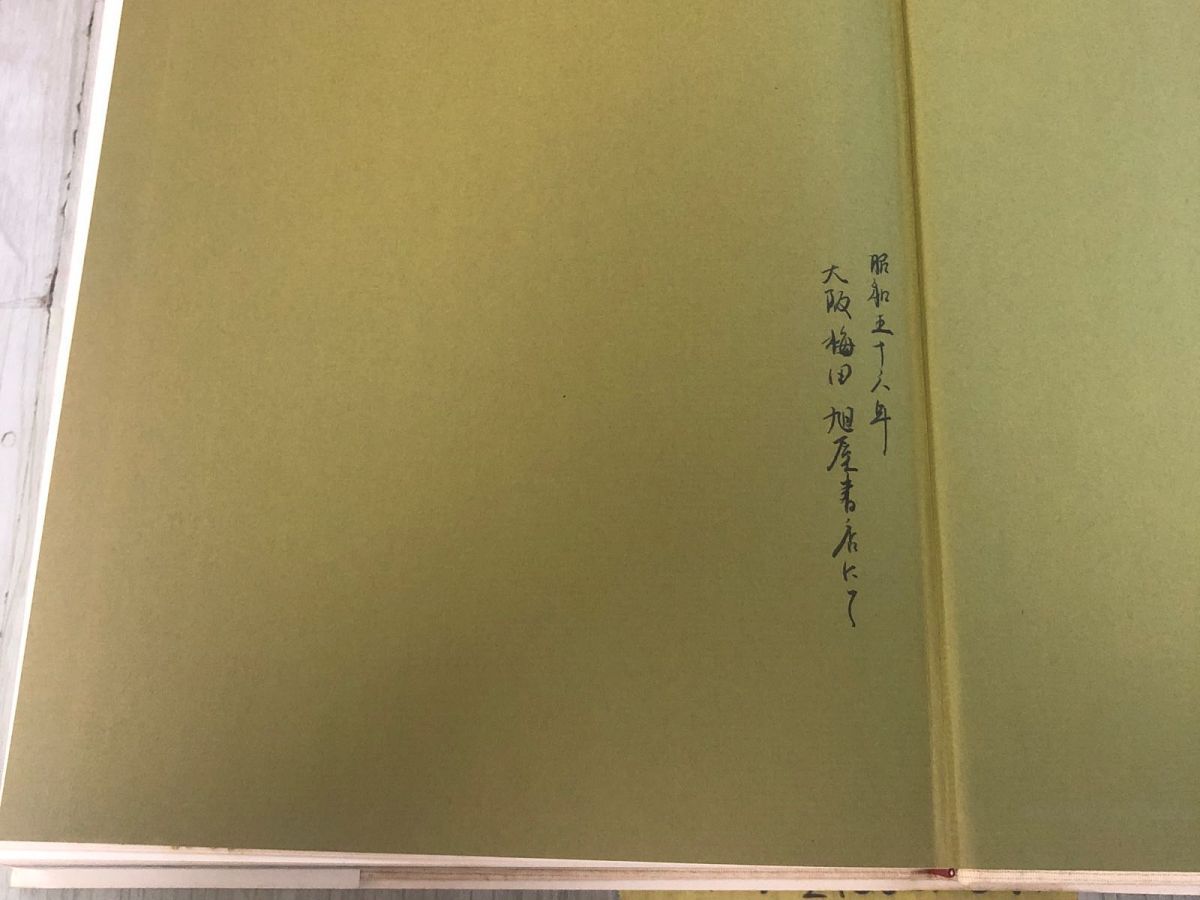 昭和五十八年
大阪梅田 旭屋書店にて